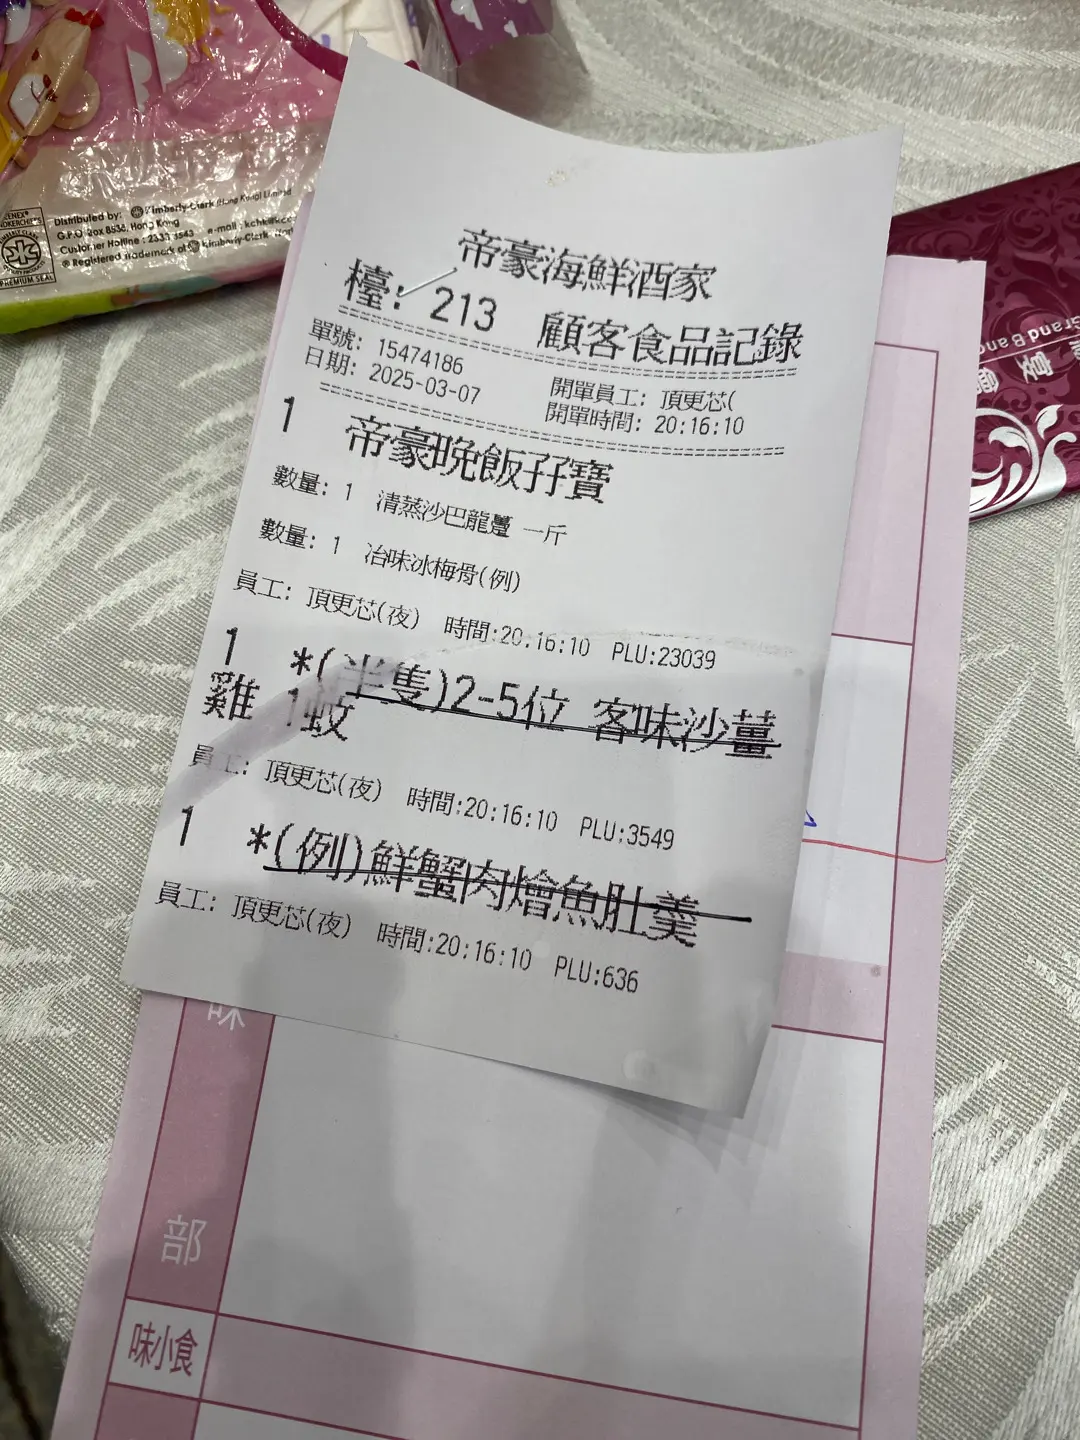 Distributed by: Kimberly-Clark (Hong Kong) Limited
G.P.O. Box 8538, Hong Kong
Customer Hotline : 2333 3543
® Registered Trademark of Kimberly-Clark
PREMIUM SEAL
帝豪海鮮酒家
檯: 213 顧客食品記錄
單號: 15474186
日期: 2025-03-07
開單員工: 頂更芯(
開單時間: 20:16:10
1 帝豪晚飯孖寶
數量: 1 清蒸沙巴龍躉 一斤
數量: 1 冶味冰梅骨(例)
員工: 頂更芯(夜) 時間:20:16:10 PLU:23039
1 *(半隻)2-5位 客味沙薑
雞 1蚊
員工: 頂更芯(夜) 時間:20:16:10 PLU:3549
1 *(例)鮮蟹肉燴魚肚羹
員工: 頂更芯(夜) 時間:20:16:10 PLU:636
味
部
味小食